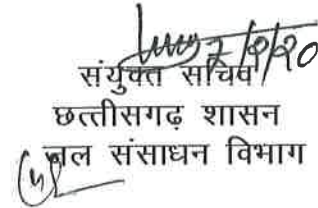 7/2/20
संयुक्त सचिव
छत्तीसगढ़ शासन
जल संसाधन विभाग